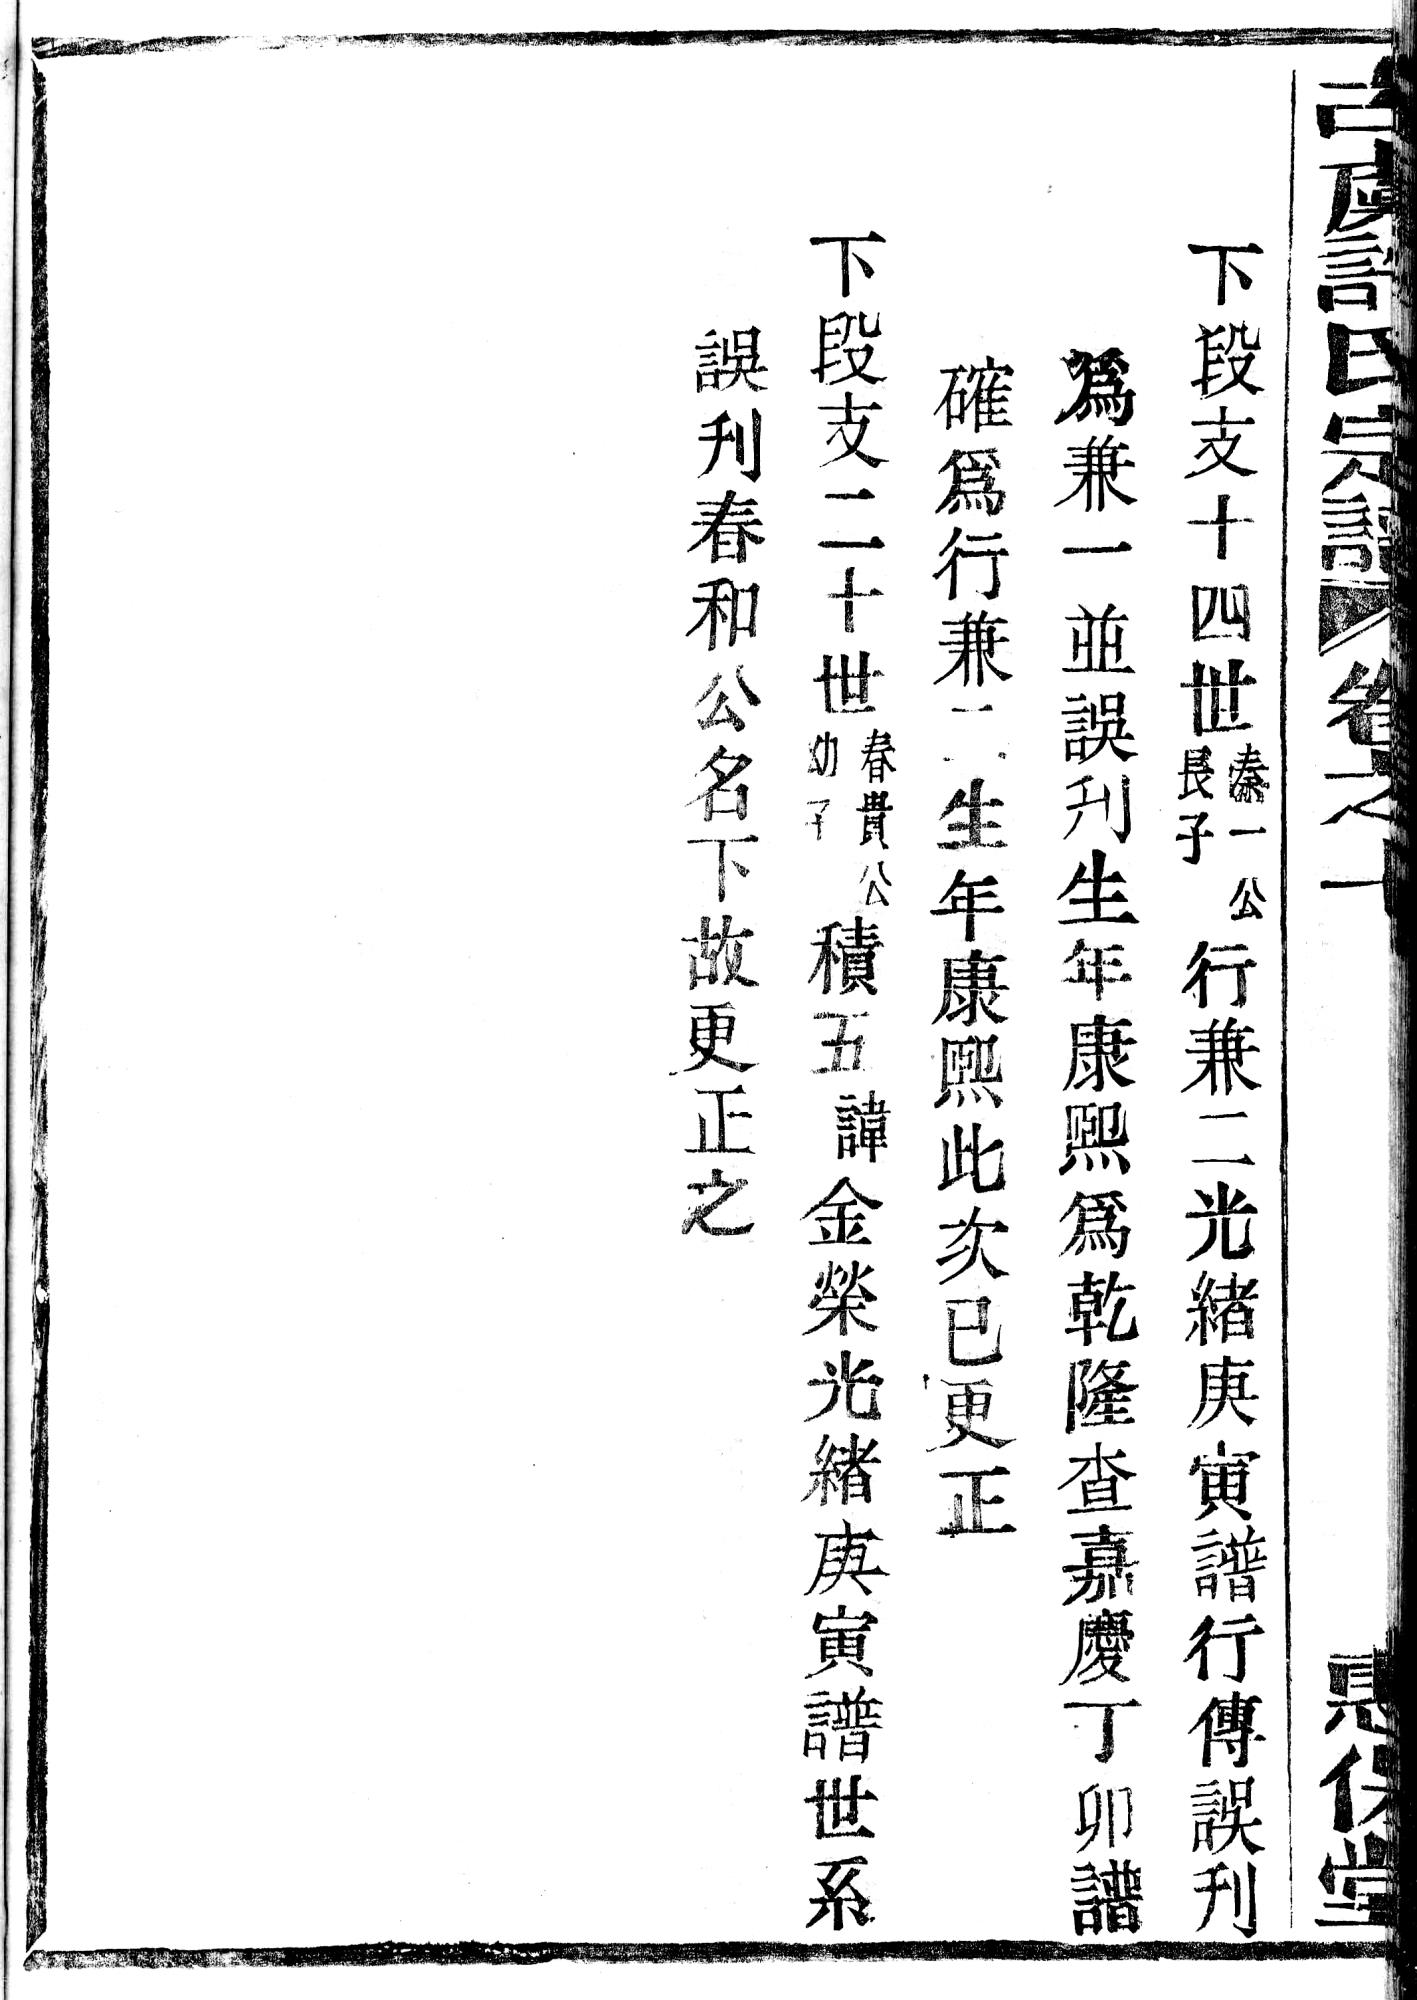 古虞許氏宗譜 卷之十
下段支十四世秦一公長子行兼二光緒庚寅譜行傳誤刋
爲兼一並誤刋生年康熙爲乾隆查嘉慶丁卯譜
確爲行兼二生年康熙此次已更正
下段支二十世春貴公幼子積五諱金榮光緒庚寅譜世系
誤刋春和公名下故更正之